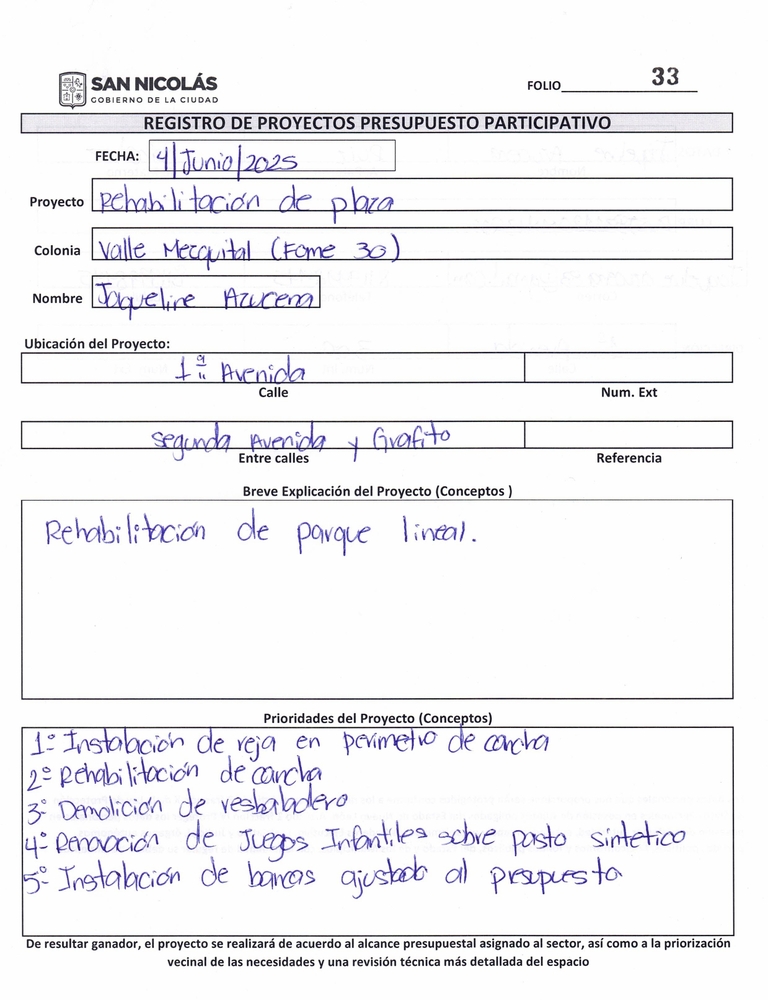 SAN NICOLÁS
GOBIERNO DE LA CIUDAD
FOLIO 33
REGISTRO DE PROYECTOS PRESUPUESTO PARTICIPATIVO
FECHA: 4/Junio/2025
Proyecto Rehabilitación de plaza
Colonia Valle Mezquital (Fome 30)
Nombre Jaqueline Azucena
Ubicación del Proyecto:
1ª Avenida
Calle Num. Ext
segunda Avenida y Grafito
Entre calles Referencia
Breve Explicación del Proyecto (Conceptos )
Rehabilitación de parque lineal.
Prioridades del Proyecto (Conceptos)
1º Instalación de reja en perimetro de cancha
2º Rehabilitación de cancha
3º Demolición de resbaladero
4º Renovación de Juegos Infantiles sobre pasto sintetico
5º Instalación de bancas ajustado al presupuesto
De resultar ganador, el proyecto se realizará de acuerdo al alcance presupuestal asignado al sector, así como a la priorización
vecinal de las necesidades y una revisión técnica más detallada del espacio